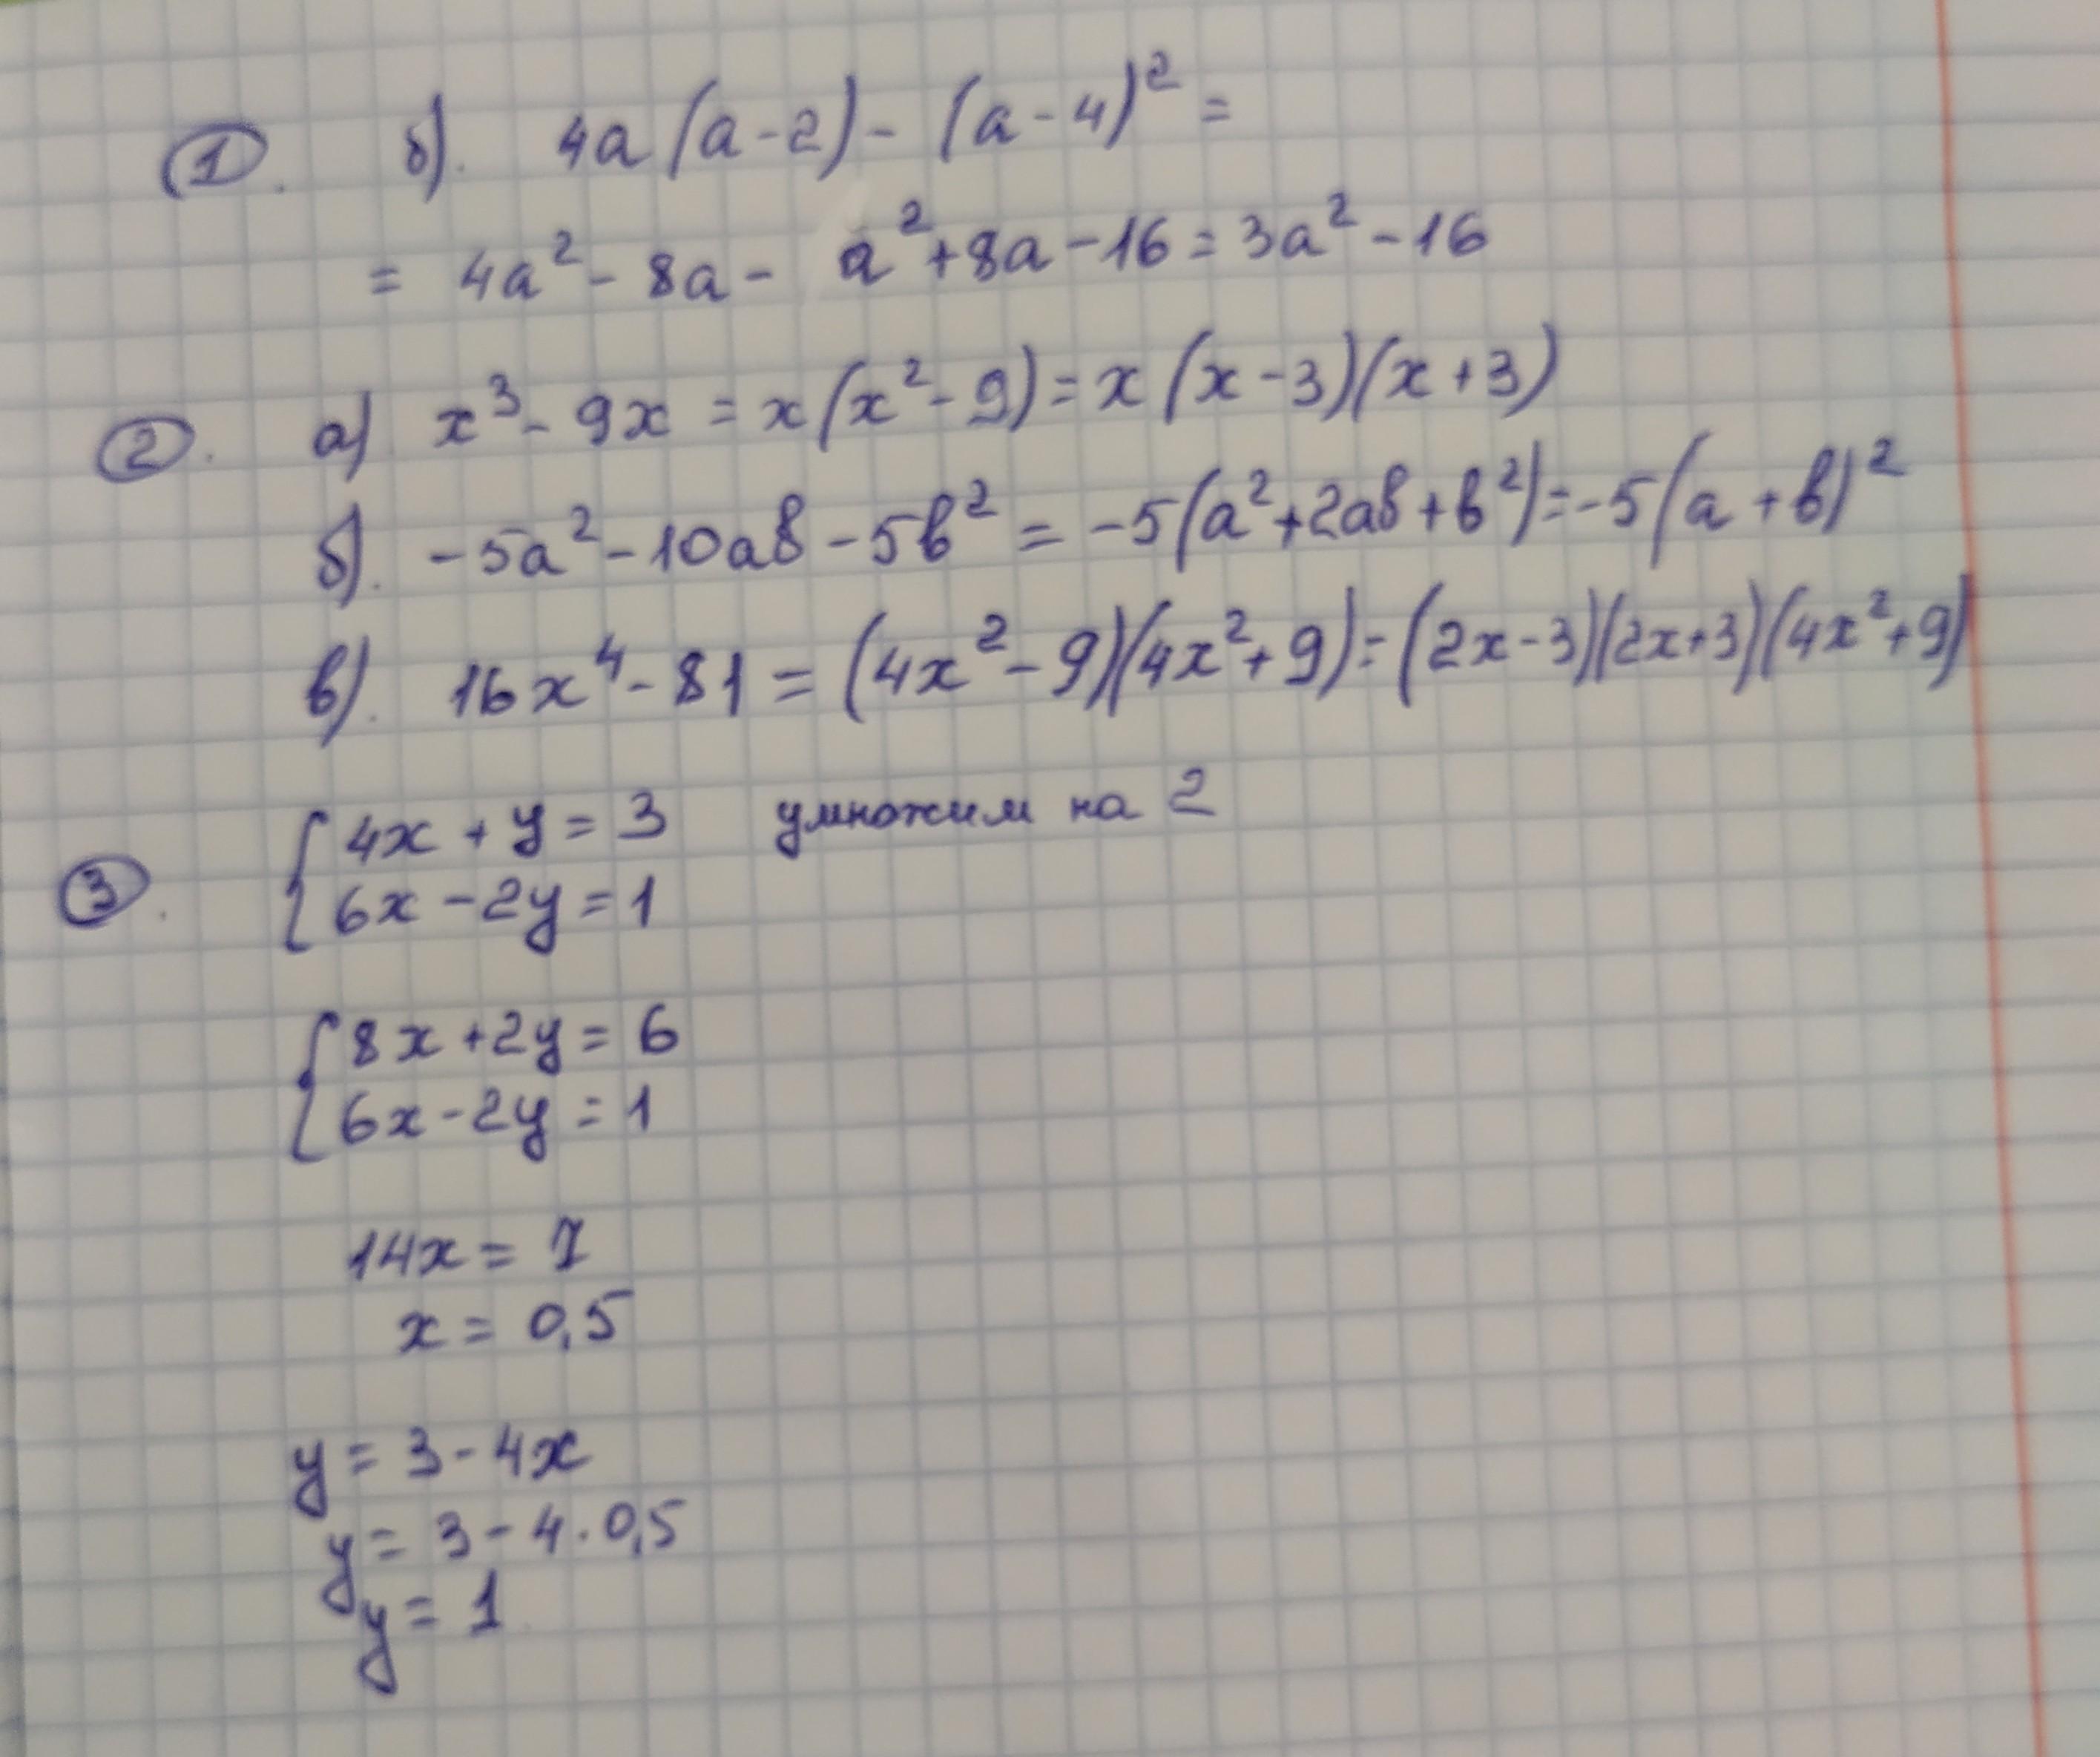 1. б). 4a(a-2)-(a-4)²=
= 4a²-8a- a²+8a-16=3a²-16
2. а) x³-9x=x(x²-9)=x(x-3)(x+3)
б). -5a²-10aв-5в²=-5(a²+2aв+в²)=-5(a+в)²
в). 16x⁴-81=(4x²-9)(4x²+9)=(2x-3)(2x+3)(4x²+9)
3. {4x+y=3 умножим на 2
6x-2y=1
{8x+2y=6
6x-2y=1
14x=7
x=0,5
y=3-4x
y=3-4·0,5
y=1